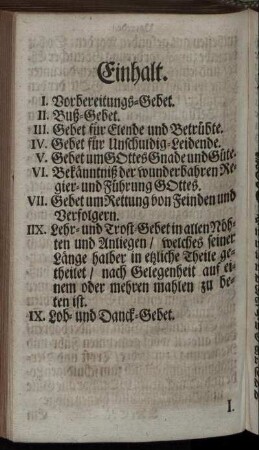 Einhalt.
I. Vorbereitungs-Gebet.
II. Buß-Gebet.
III. Gebet für Elende und Betrübte.
IV. Gebet für Unschuldig-Leidende.
V. Gebet um GOttes Gnade und Güte.
VI. Bekänntniß der wunderbahren Re-
gier- und Führung GOttes.
VII. Gebet um Rettung von Feinden und
Verfolgern.
IIX. Lehr- und Trost-Gebet in allen Nöh-
ten und Anliegen / welches seiner
Länge halber in etzliche Theile ge-
theilet / nach Gelegenheit auf ei-
nem oder mehren mahlen zu be-
ten ist.
IX. Lob- und Danck-Gebet.
I.